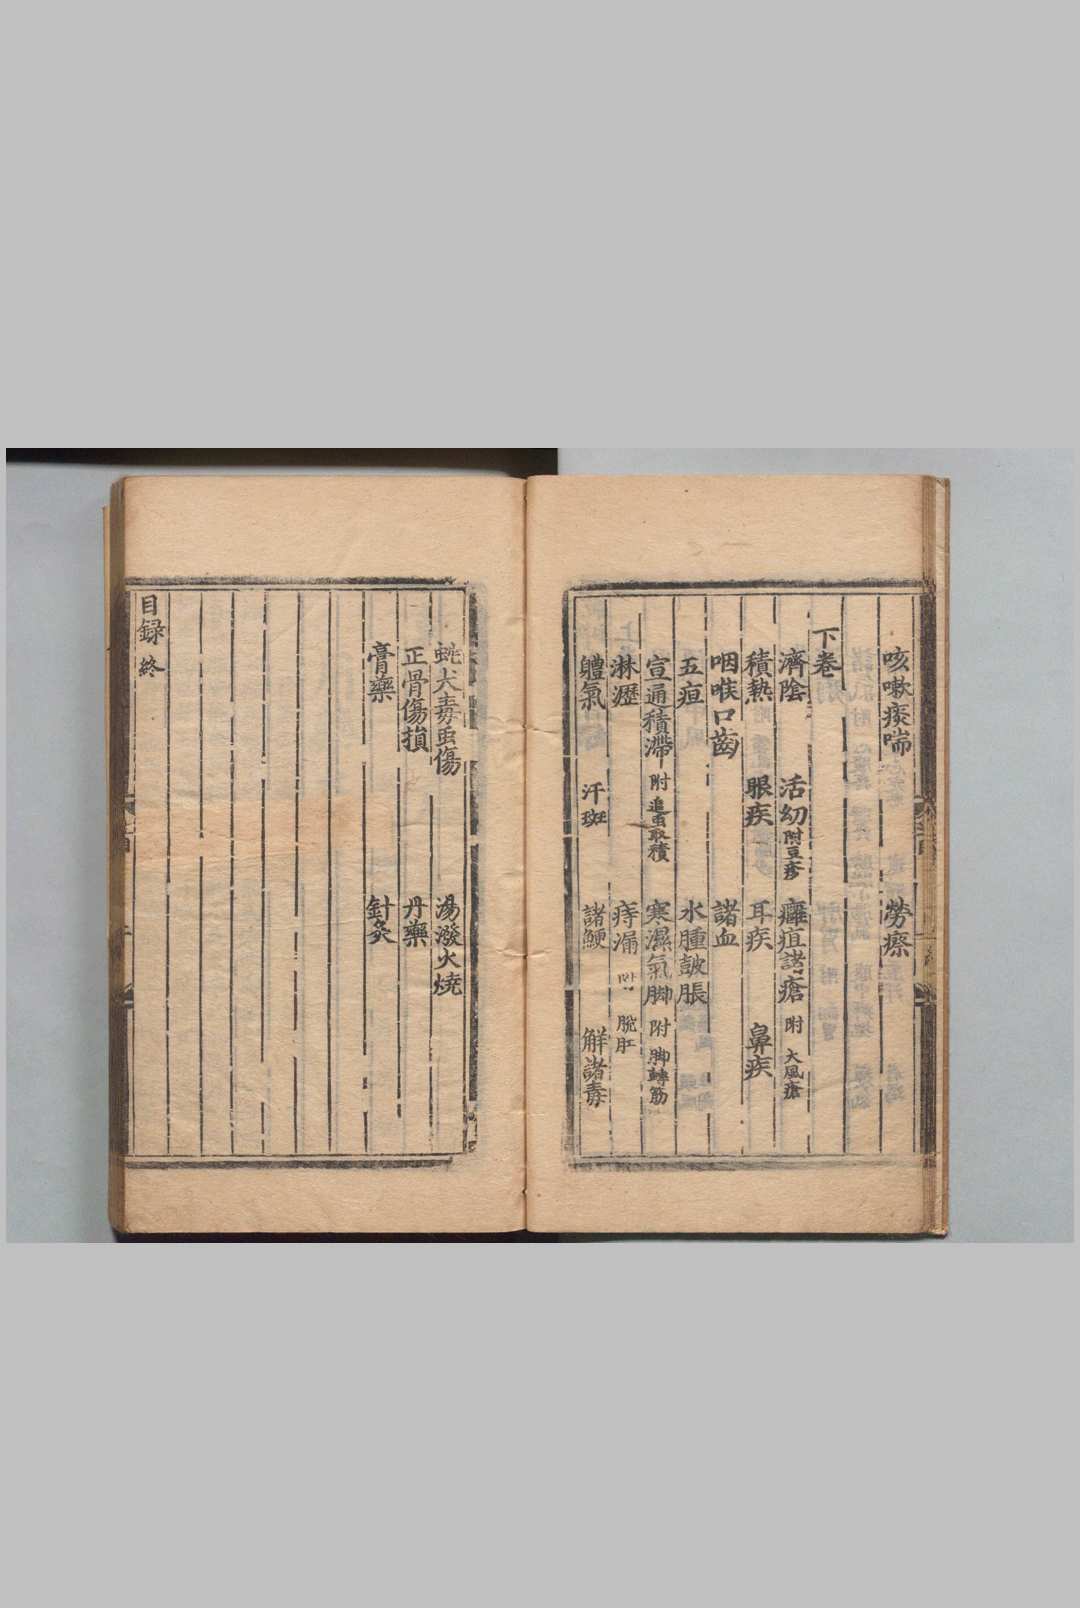 咳嗽痰喘 勞瘵
下卷
濟陰 活幼附豆疹 癰疽諸瘡 附 大風瘡
積熱 眼疾 耳疾 鼻疾
咽喉口齒 諸血
五疸 水腫皷脹
宣通積滯 附 追蟲取積 寒濕氣脚 附 脚轉筋
淋瀝 痔漏 附 脫肛
軆氣 汗斑 諸鯁 解諸毒
蛇犬毒䖝傷 湯潑火燒
正骨傷損 丹藥
膏藥 針灸
目録 終